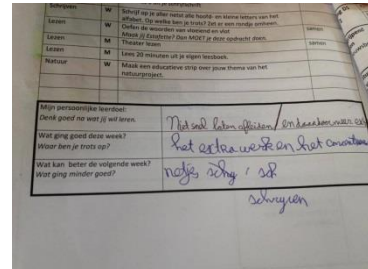 Schrijven W Schrijf op je aller netst alle hoofd- en kleine letters van het
alfabet. Op welke ben je trots? Zet er een rondje omheen.
Lezen W Oefen de woorden van vloeiend en vlot samen
Maak jij Estafette? Dan MOET je deze opdracht doen.
Lezen M Theater lezen samen
Lezen M Lees 20 minuten uit je eigen leesboek.
Natuur W Maak een educatieve strip over jouw thema van het
natuurproject.
Mijn persoonlijke leerdoel:
Denk goed na wat jij wil leren.
Niet snel laten afleiden / en daardoor meer
Wat ging goed deze week?
Waar ben je trots op?
het extra werk en het
Wat kan beter de volgende week?
Wat ging minder goed?
netjes schrij, sch
schrijven